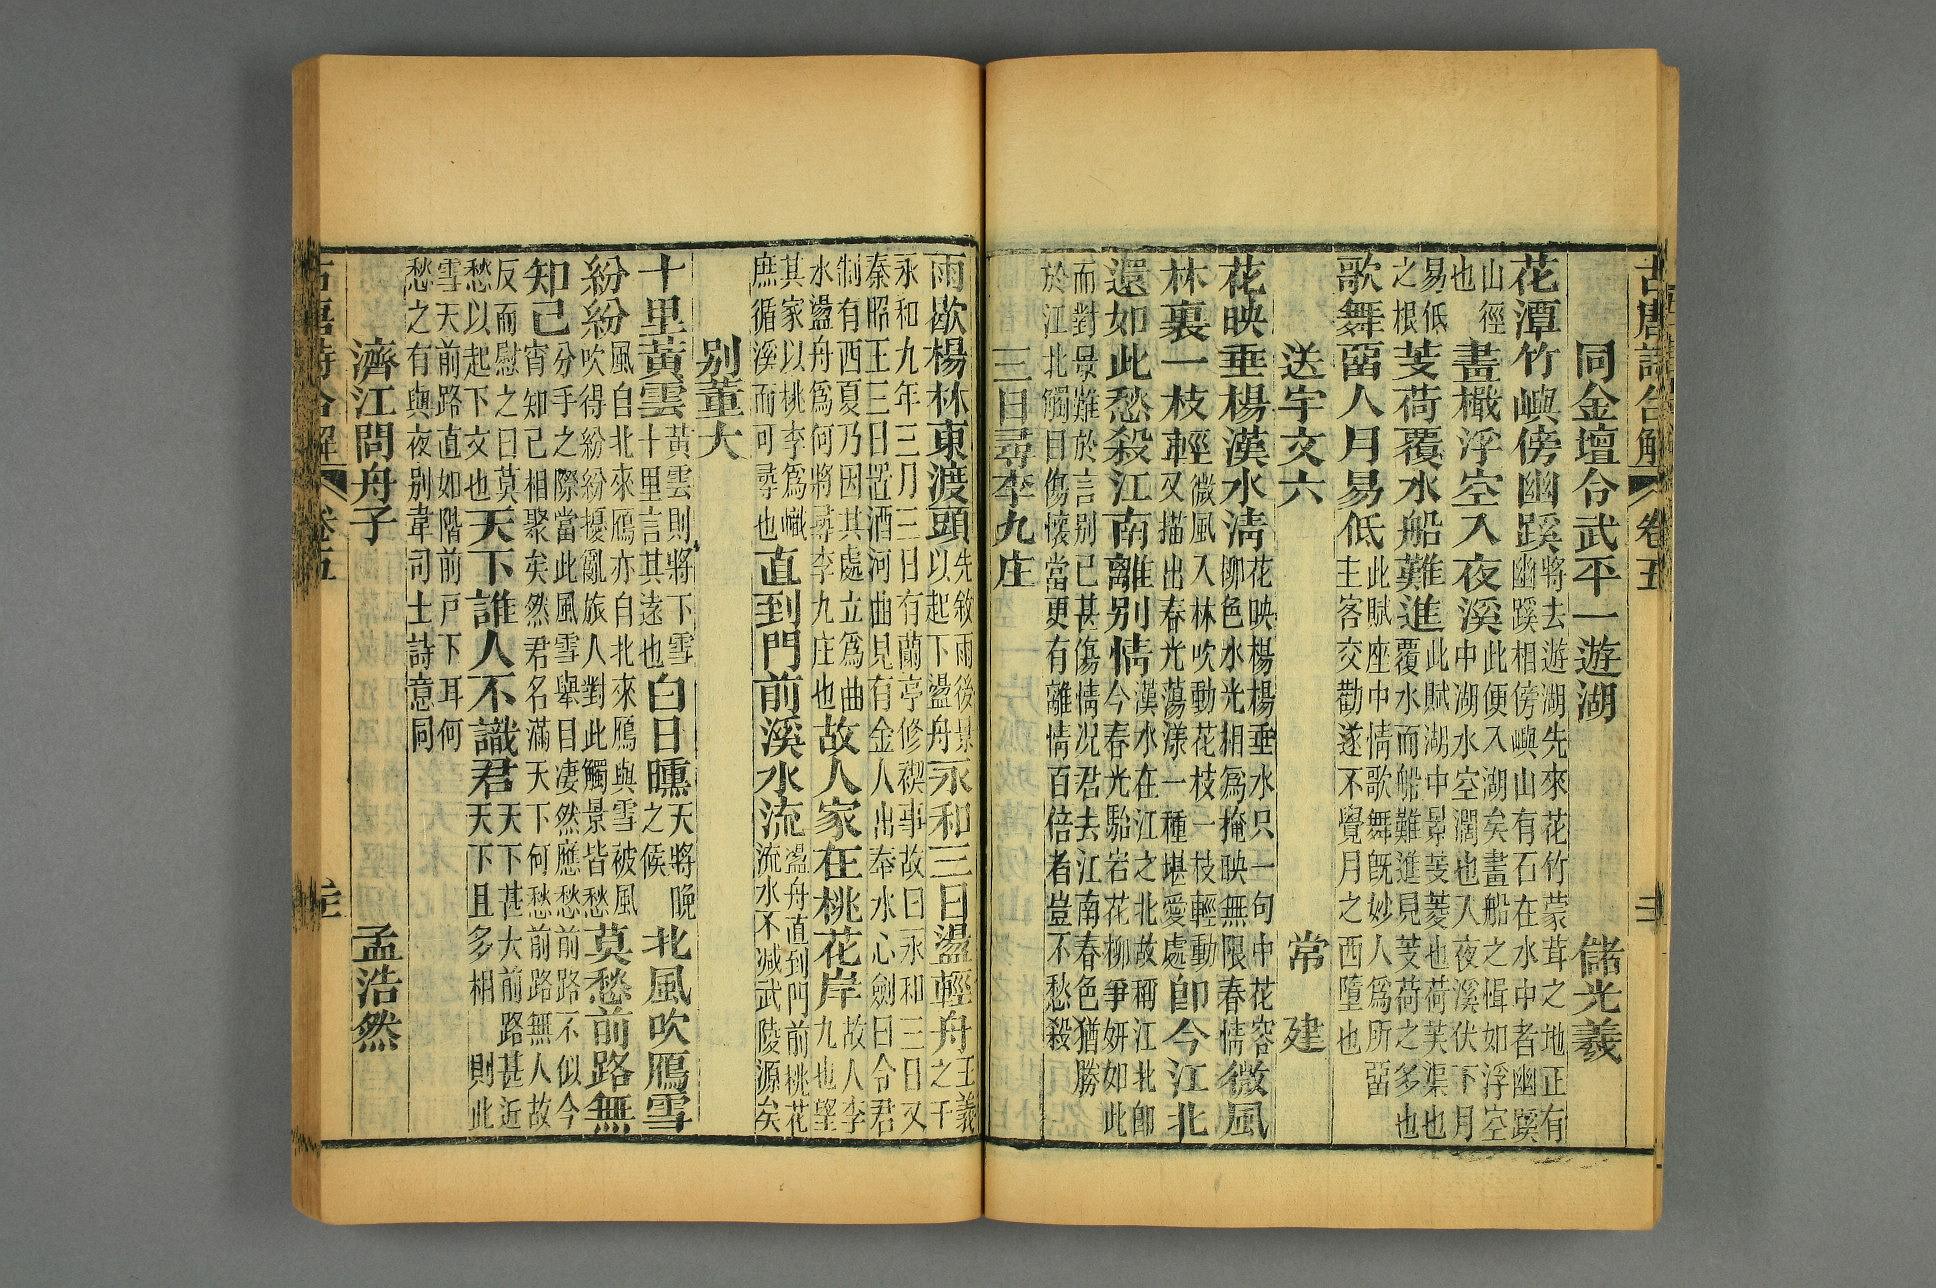 古唐詩合解 卷五
同金壇令武平一遊湖 儲光羲
花潭竹嶼傍幽蹊
將去遊湖先來花竹蒙茸之地正有
幽蹊相傍嶼山有石在水中者幽蹊
山徑
也
畫檝浮空入夜溪
此便入湖矣畫船之檝如浮空
中湖水空濶也入夜溪伏下月
易低
之根
芰荷覆水船難進
此賦湖中景芰菱也荷芙渠也
覆水而船難進見芰荷之多也
歌舞留人月易低
此賦座中情歌舞旣妙人爲所留
主客交勸遂不覺月之西墮也
送宇文六 常建
花映垂楊漢水清
花映楊楊垂水只一句中花容
柳色水光相爲掩映無限春情
微風
林裏一枝輕
微風入林吹動花枝一枝輕動
又描出春光蕩漾一種堪愛處
即今江北
還如此愁殺江南離别情
漢水在江之北故稱江北卽
今春光駘宕花柳爭妍如此
而對景難於言别已甚傷情况君去江南春色猶勝
於江北觸目傷懷當更有離情百倍者豈不愁殺
三日尋李九庄
雨歇楊林東渡頭
先敘雨後景
以起下盪舟
永和三日盪輕舟
王羲
之于
永和九年三月三日有蘭亭修禊事故曰永和三日又
秦昭王三日置酒河曲見有金人出奉水心劍曰令君
制有西夏乃因其處立爲曲
水盪舟爲何將尋李九庄也
故人家在桃花岸
故人李
九也望
其家以桃李爲幟
庶循溪而可尋也
直到門前溪水流
盪舟直到門前桃花
流水不减武陵源矣
别董大
十里黃雲
黃雲則將下雪
十里言其遠也
白日曛
天將晚
之候
北風吹鴈雪
紛紛
風自北來鴈亦自北來鴈與雪被風
吹得紛紛擾亂旅人對此觸景皆愁
莫愁前路無
知己
分手之際當此風雪舉目凄然應愁前路不似今
宵知己相聚矣然君名滿天下何愁前路無人故
反而慰之曰莫
愁以起下文也
天下誰人不識君
天下甚大前路甚近
天下且多相 則此
雪天前路直如階前戶下耳何
愁之有與夜别韋司士詩意同
濟江問舟子 孟浩然
古唐詩合解 卷五